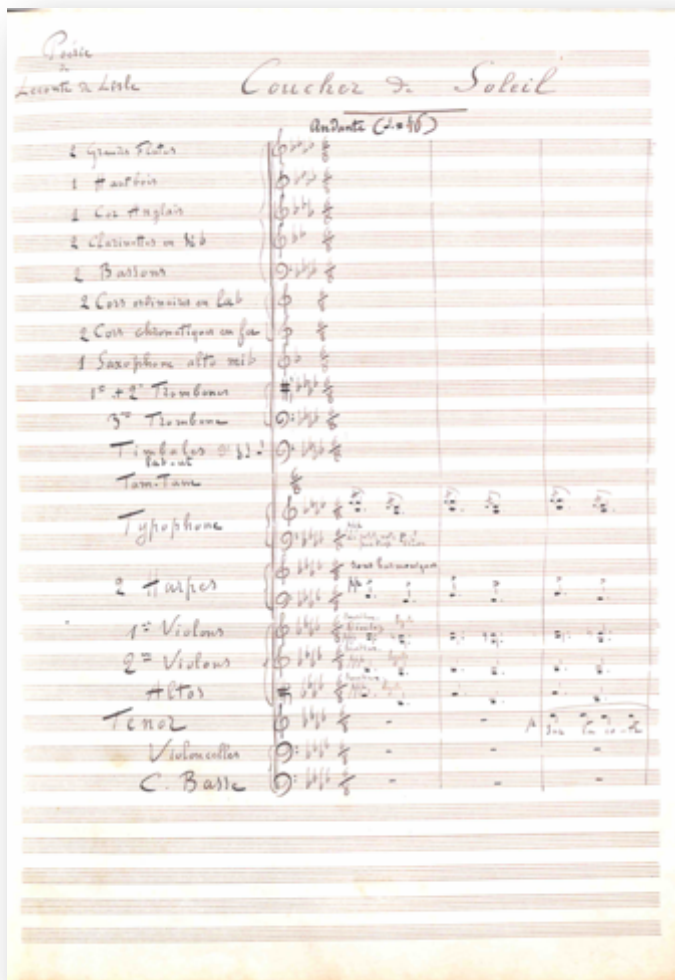 Poésie
de
Leconte de Lisle
Coucher de Soleil
Andante (♩.=46)
2 Grandes Flutes
1 Hautbois
1 Cor Anglais
2 Clarinettes en Sib
2 Bassons
2 Cors ordinaires en lab
2 Cors chromatiques en fa
1 Saxophone alto mib
1er + 2e Trombones
3me Trombone
Timbales
lab-ut
Tam-Tam
Typophone
2 Harpes
sons harmoniques
1ers Violons
2mes Violons
Altos
Tenor
Sur la co-te
Violoncelles
C. Basse